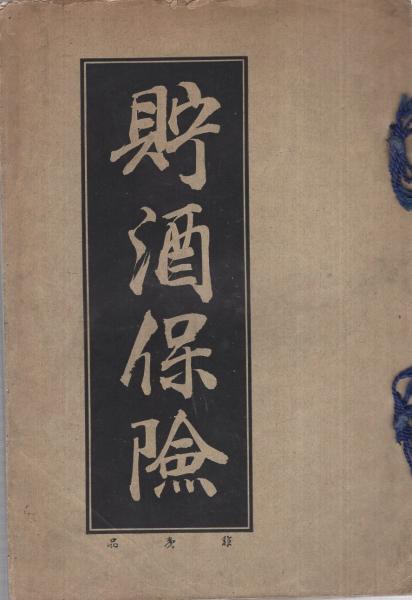 貯酒保險
非賣品